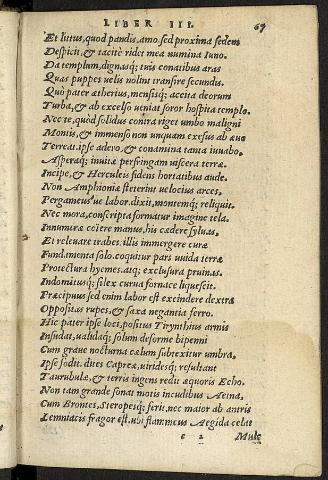 LIBER III. 69
Et litus, quod pandis, amo. sed proxima sedem
Despicit, & tacitè ridet mea numina Iuno.
Da templum, dignasq; tuis conatibus aras
Quas puppes velis nolint transire secundis.
Quò pater ætherius, mensisq; accita deorum
Turba, & ab excelso veniat soror hospita templo.
Nec te, quòd solidus contra riget umbo maligni
Montis, & immenso non unquam exesus ab æuo
Terreat. ipse adero, & conamina tanta iuuabo.
Asperaq; inuitæ perfringam uiscera terræ.
Incipe, & Herculeis fidens hortatibus aude.
Non Amphioniæ steterint velocius arces,
Pergameus ue labor. dixit, mentemq; reliquit.
Nec mora, conscripta formatur imagine tela.
Innumeræ coiere manus, his cædere syluas,
Et releuare trabes. illis immergere curæ
Fundamenta solo. coquitur pars uuida terræ
Protectura hyemes, atq; exclusura pruinas.
Indomitusq; silex curua fornace liquescit.
Præcipuus sed enim labor est excindere dextra
Oppositas rupes, & saxa negantia ferro.
Hic pater ipse loci, positus Tirynthius armis
Insudat, ualidaq; solum deforme bipenni
Cum graue nocturna cælum subtexitur umbra,
Ipse fodit. dites Capreæ, uiridesq; resultant
Taurubulæ, & terris ingens redit æquoris Echo.
Non tam grande sonat motis incudibus Aetna,
Cum Brontes, Steropesq; ferit. nec maior ab antris
Lemniacis fragor est, ubi flammeus Aegida celat
2 Mulc